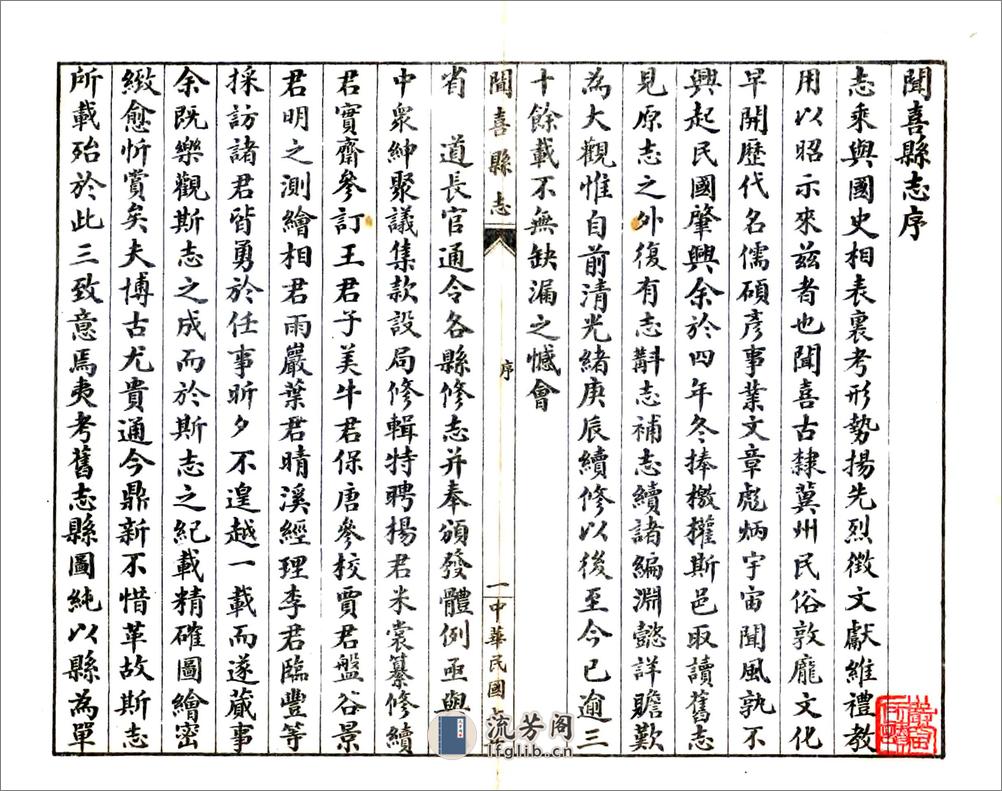 聞喜縣志序
志乘與國史相表裏考形勢揚先烈徵文獻維禮教
用以昭示來兹者也聞喜古隸冀州民俗敦龐文化
早開歷代名儒碩彥事業文章彪炳宇宙聞風孰不
興起民國肇興余於四年冬捧檄權斯邑取讀舊志
見原志之外復有志斠志補志續諸編淵懿詳贍歎
為大觀惟自前清光緒庚辰續修以後至今已逾三
十餘載不無缺漏之憾會
聞喜縣志 序 一 中華民國
省 道長官通令各縣修志并奉頒發體例亟與
中衆紳聚議集款設局修輯特聘楊君米裳纂修續
君實齋參訂王君子美牛君保唐參校賈君盤谷景
君明之測繪相君雨巖葉君晴溪經理李君臨豐等
採訪諸君皆勇於任事昕夕不遑越一載而遂蕆事
余既樂觀斯志之成而於斯志之紀載精確圖繪密
緻愈忻賞矣夫博古尤貴通今鼎新不惜革故斯志
所載殆於此三致意焉夷考舊志縣圖純以縣為單
流芳阁
lfglib.cn